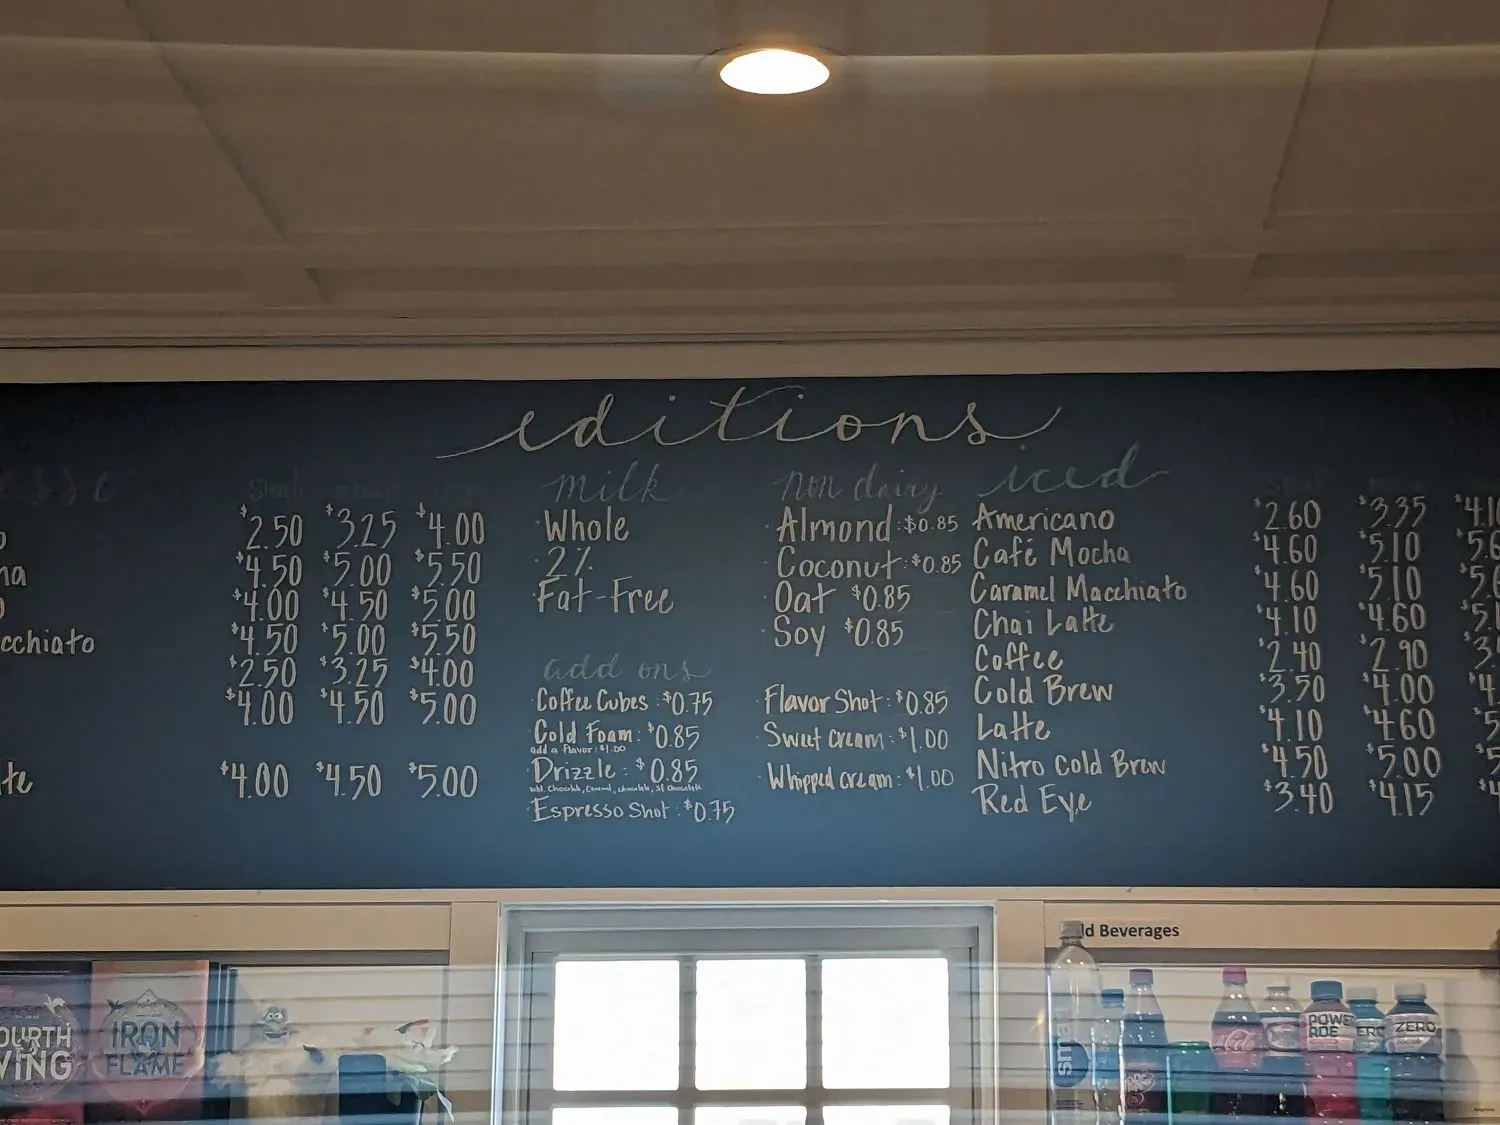 editions
esso
Small
$2.50 $3.25 $4.00
$4.50 $5.00 $5.50
$4.00 $4.50 $5.00
cchiato $4.50 $5.00 $5.50
$2.50 $3.25 $4.00
$4.00 $4.50 $5.00
$4.00 $4.50 $5.00
milk
Whole
2%
Fat-Free
add ons
Coffee Cubes: $0.75
Cold Foam: $0.85
add a flavor: $1.00
Drizzle: $0.85
Espresso Shot: $0.75
non dairy
Almond: $0.85
Coconut: $0.85
Oat $0.85
Soy $0.85
Flavor Shot: $0.85
Sweet cream: $1.00
Whipped cream: $1.00
iced
Americano $2.60 $3.35 $4.10
Café Mocha $4.60 $5.10 $5.6
Caramel Macchiato $4.60 $5.10 $5.6
Chai Latte $4.10 $4.60 $5.1
Coffee $2.40 $2.90 $3.
Cold Brew $3.50 $4.00 $4.
Latte $4.10 $4.60 $5.
Nitro Cold Brew $4.50 $5.00 $5
Red Eye $3.40 $4.15 $4
ld Beverages
OURTH
WING
IRON
FLAME
smart
POWE
ADE
ERO
ZERO